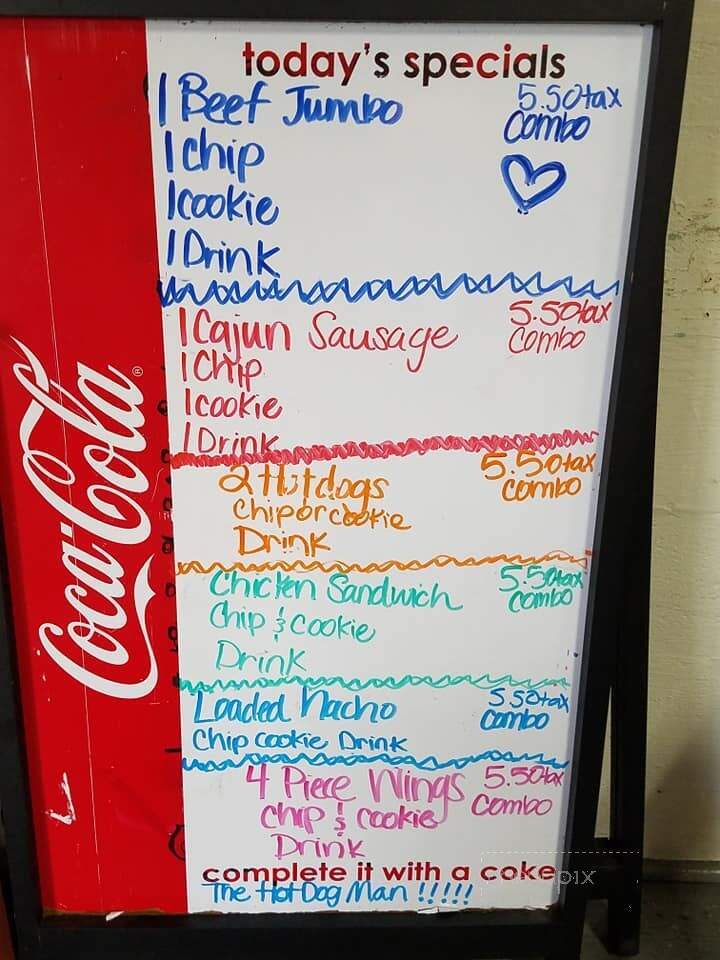 today's specials
1 Beef Jumbo 5.50tax
combo
1 chip
1 cookie
1 Drink
1 Cajun Sausage 5.50tax
combo
1 Chip
1 cookie
1 Drink
2 Hotdogs 5.50tax
combo
chip or cookie
Drink
Chicken Sandwich 5.50tax
combo
Chip & Cookie
Drink
Loaded Nacho 5.50tax
combo
Chip cookie Drink
4 Piece Wings 5.50tax
combo
chip & cookie
Drink
complete it with a coke
The Hot Dog Man !!!!!
Coca-Cola